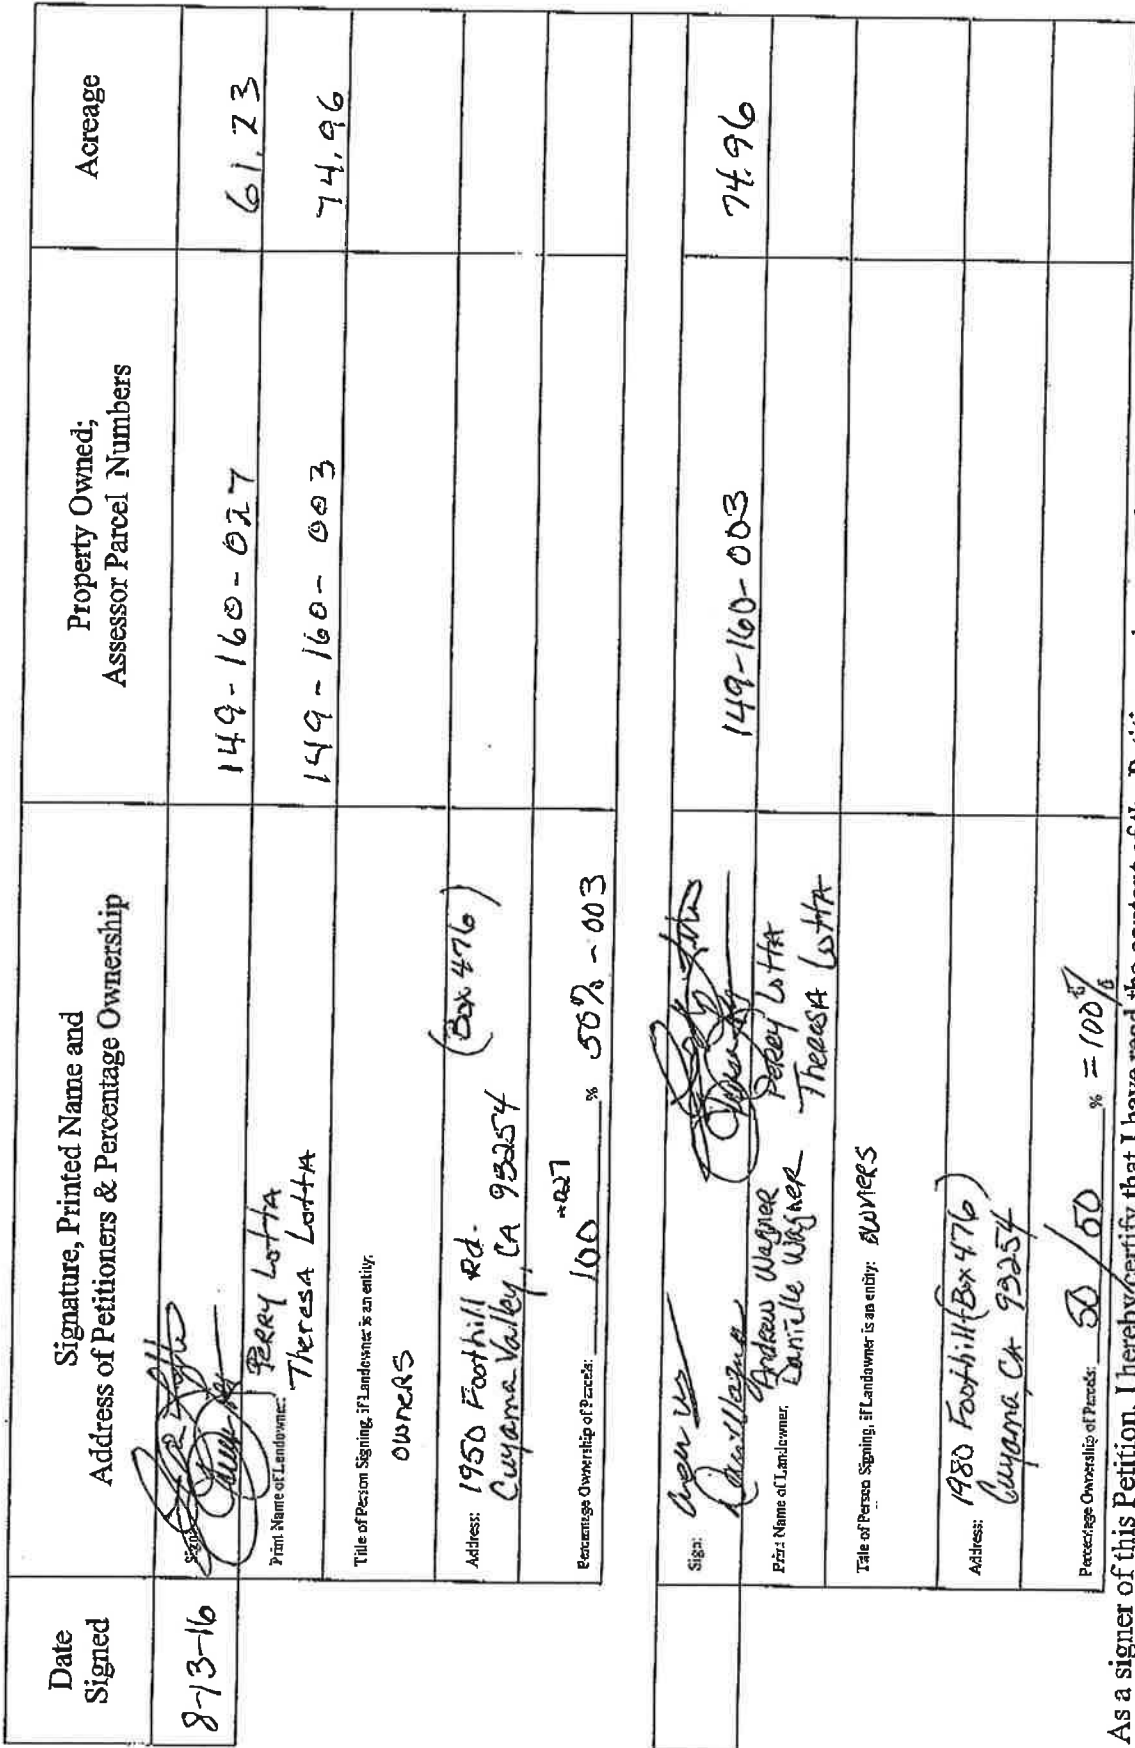 Date
Signed
Signature, Printed Name and
Address of Petitioners & Percentage Ownership
Property Owned;
Assessor Parcel Numbers
Acreage
8-13-16
Sign:
149-160-027
61.23
Print Name of Landowner: PERRY LottA
TheresA LottA
149-160-003
74.96
Title of Person Signing, if Landowner is an entity:
owners
Address: 1950 Foothill Rd. (Box 476)
Cuyama Valley, CA 93254
Percentage Ownership of Parcels: 100 % 50% - 003
Sign:
149-160-003
74.96
Print Name of Landowner: Andrew Wagner Perry LottA
Danielle Wagner TheresA LottA
Title of Person Signing, if Landowner is an entity: owners
Address: 1980 Foothill (Box 476)
Cuyama CA 93254
Percentage Ownership of Parcels: 50/50 % = 100%
As a signer of this Petition, I hereby certify that I have read the content of the Petition